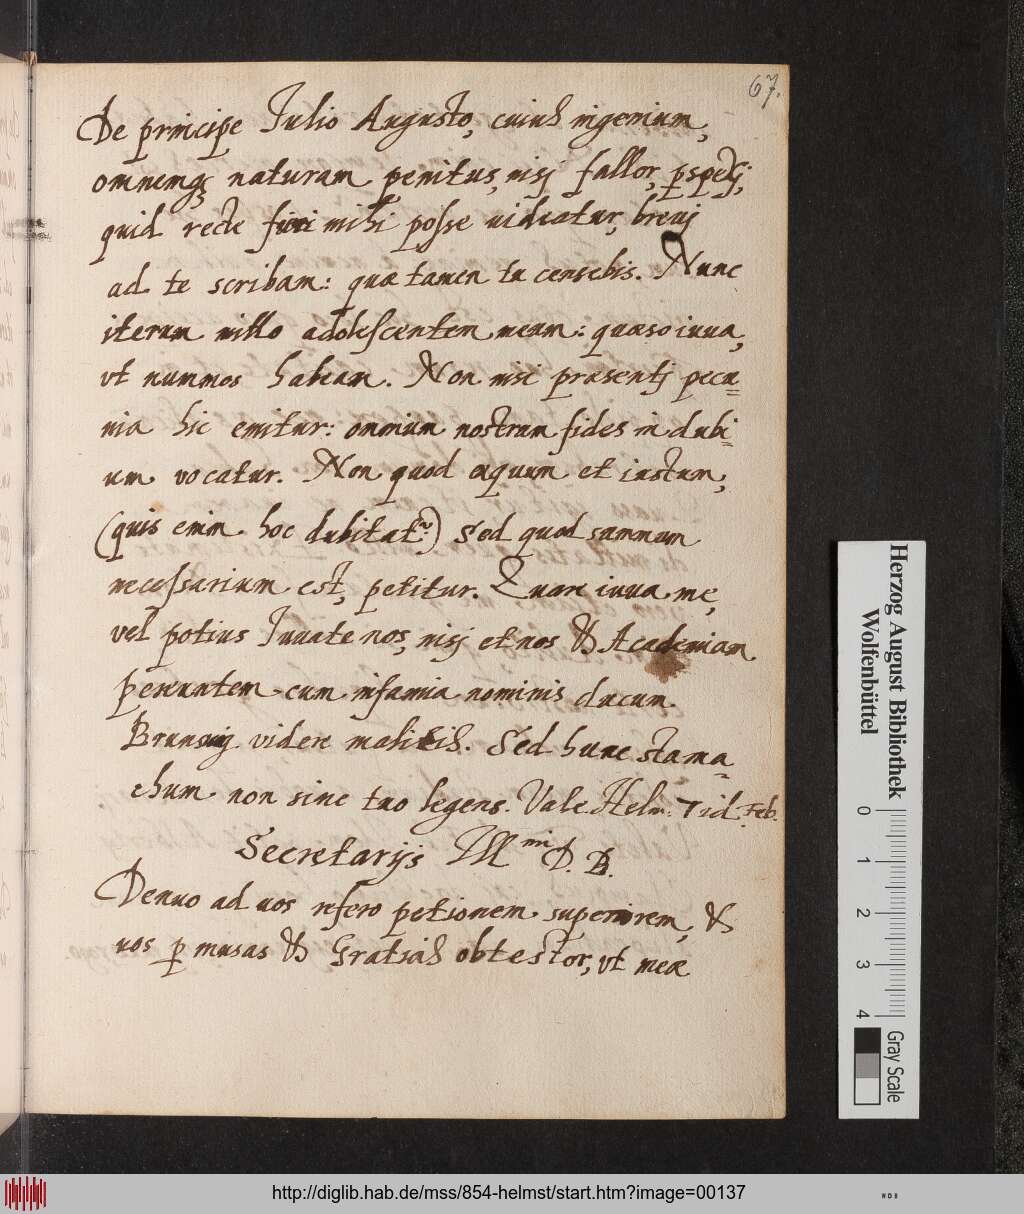 67.
De principe Julio Augusto, cuius ingenium,
omnemq; naturam penitus, nisj fallor, pspexj,
quid recte fieri mihi posse uideatur, breuj
ad te scribam: quæ tamen tu censebis. Nunc
iterum mitto adolescentem meum: quæso iuua,
vt nummos habeam. Non nisi præsentj pecu=
nia hic emitur: omnium nostrum fides in dubi=
um vocatur. Non quod æquum et iustum,
(quis enim hoc dubitat?) Sed quod summum
necessarium est, petitur. Quare iuua me,
vel potius Juuate nos, nisj et nos & Academiam
pereuntem cum infamia nominis ducum
Brunsuig videre malitis. Sed hunc stama=
chum non sine tuo legens. Vale. Helm: 7 id. Feb.
Secretarijs Ill mi D. B.
Denuo ad uos refero petionem superiorem, &
uos p musas & Gratias obtestor, vt meæ
Herzog August Bibliothek
Wolfenbüttel
0 1 2 3 4
Gray Scale
http://diglib.hab.de/mss/854-helmst/start.htm?image=00137